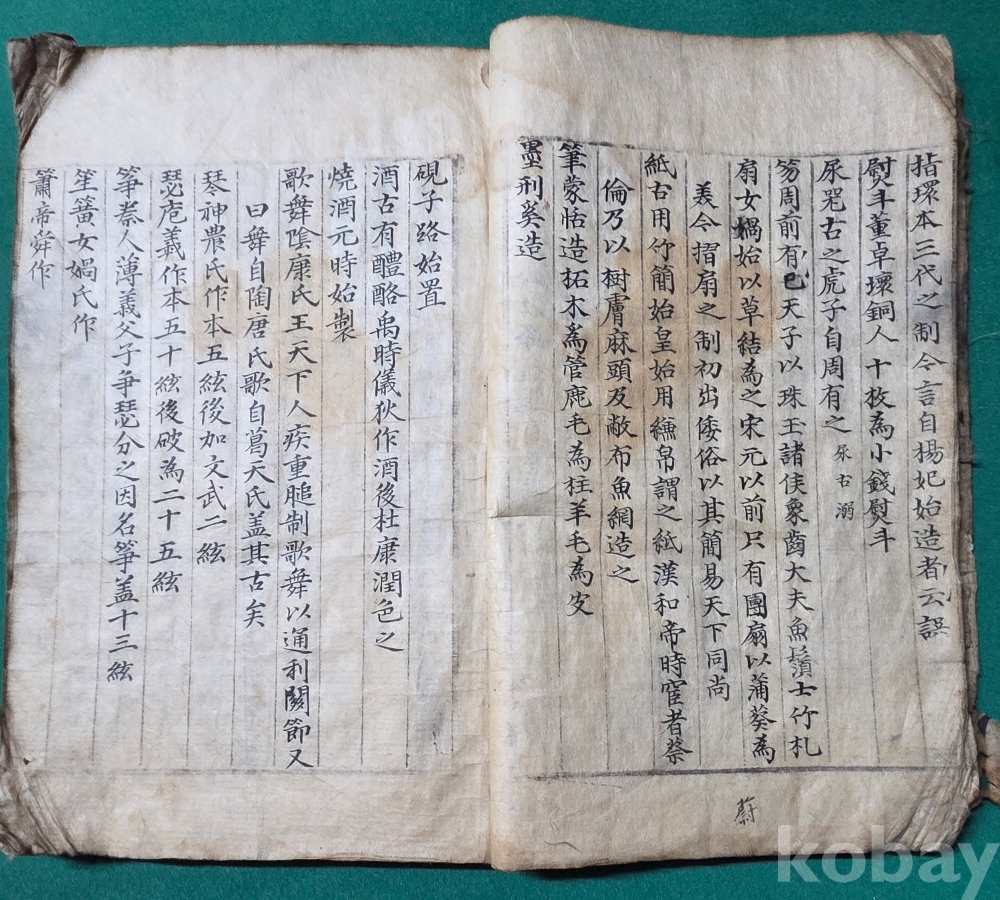 指環本三代之制今言自楊妃始造者云誤
熨斗董卓壞銅人十枚為小錢熨斗
尿器古之虎子自周有之 尿古溺
笏周前有已天子以珠玉諸侯象齒大夫魚鬚士竹札
扇女媧始以草結為之宋元以前只有團扇以蒲葵為
義今摺扇之制初出倭俗以其簡易天下同尚
紙古用竹簡始皇始用縑帛謂之紙漢和帝時宦者蔡
倫乃以樹膚麻頭及敝布魚網造之
筆蒙恬造柘木為管鹿毛為柱羊毛為皮
墨刑奚造
硯子路始置
酒古有醴酪禹時儀狄作酒後杜康潤色之
燒酒元時始製
歌舞陰康氏王天下人疾重膇制歌舞以通利關節又
曰舞自陶唐氏歌自葛天氏盖其古矣
琴神農氏作本五絃後加文武二絃
瑟庖羲作本五十絃後破為二十五絃
箏秦人薄義父子爭瑟分之因名箏盖十三絃
笙簧女媧氏作
簫帝舜作
kobay